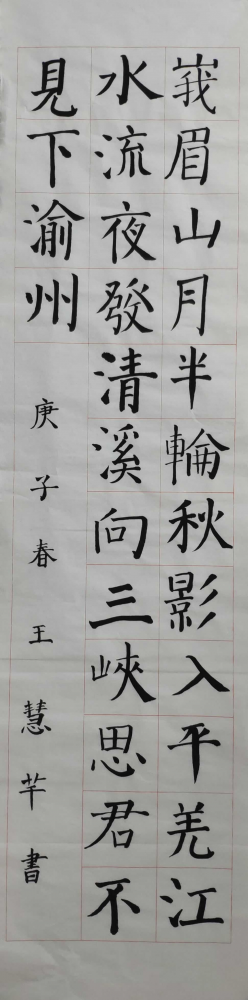 峩眉山月半輪秋影入平羌江
水流夜發清溪向三峽思君不
見下渝州
庚子春王慧芊書